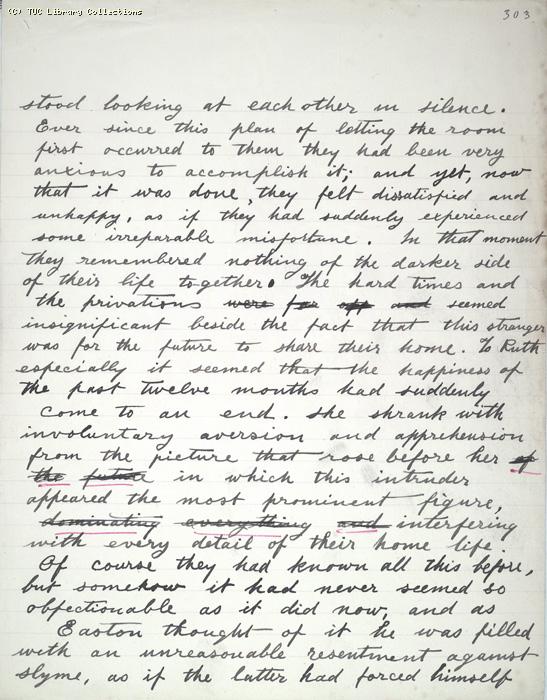 (C) TUC Library Collections
303
stood looking at each other in silence.
Ever since this plan of letting the room
first occurred to them they had been very
anxious to accomplish it; and yet, now
that it was done, they felt dissatisfied and
unhappy, as if they had suddenly experienced
some irreparable misfortune. In that moment
they remembered nothing of the darker side
of their life together. The hard times and
the privations were far off and seemed
insignificant beside the fact that this stranger
was for the future to share their home. To Ruth
especially it seemed that the happiness of
the past twelve months had suddenly
come to an end. She shrank with
involuntary aversion and apprehension
from the picture that rose before her of
the future in which this intruder
appeared the most prominent figure,
dominating everything and interfering
with every detail of their home life.
Of course they had known all this before,
but somehow it had never seemed so
objectionable as it did now, and as
Easton thought of it he was filled
with an unreasonable resentment against
Slyme, as if the latter had forced himself